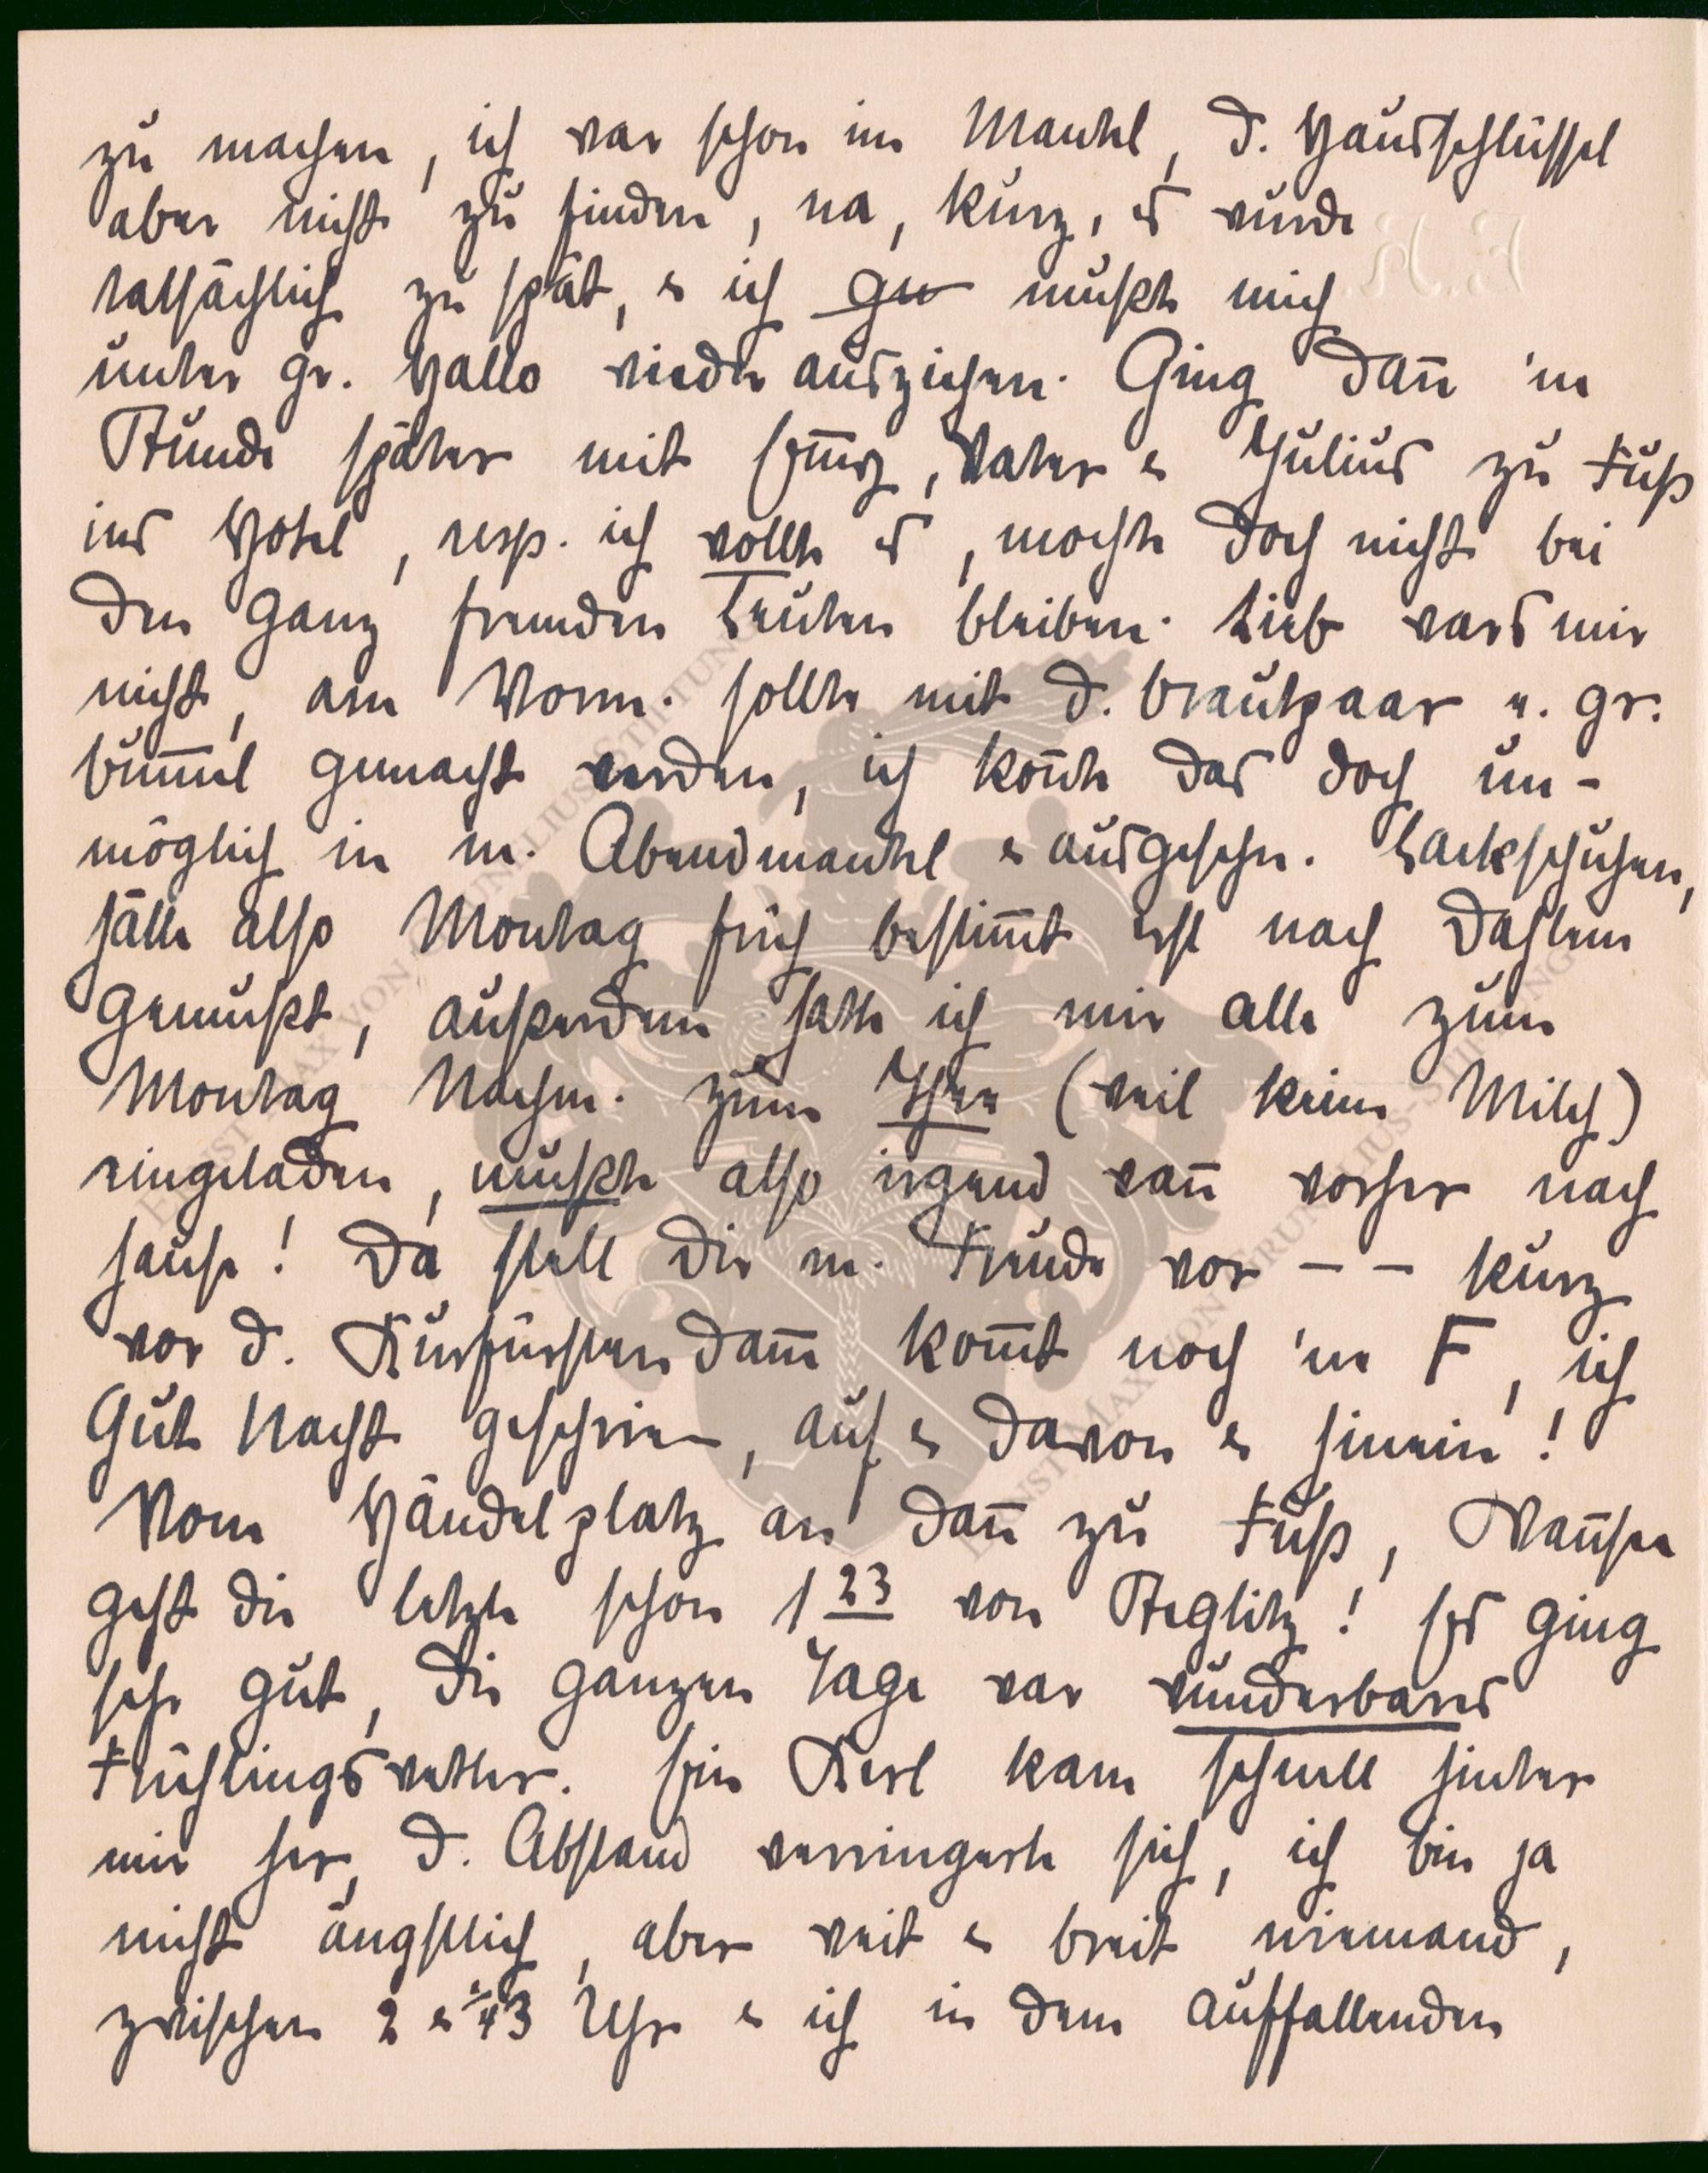 zu machen, ich war schon im Mantel, d. Hausschlüssel
aber nicht zu finden, na, kurz, es wurde
tatsächlich zu spät, & ich gu mußte mich
unter gr. Hallo wieder ausziehen. Ging dann 'ne
Stunde später mit Vater & Julius zu Fuß
ins Hotel, resp. ich wollte es, mochte doch nicht bei
den ganz fremden Leuten bleiben. Lieb wars mir
nicht, am Vorm. sollte mit d. Brautpaar e. gr.
Bummel gemacht werden, ich konnte das doch un-
möglich in m. Abendmantel & ausgeschn. Lackschuhen,
hätte also Montag früh bestimmt erst nach Dahlem
gemußt, außerdem hatte ich mir alle zum
Montag Nachm. zum Thee (weil keine Milch)
eingeladen, mußte also irgend wann vorher nach
hause! Da stell Dir m. Freude vor – – kurz
vor d. Kurfürstendamm kommt noch 'ne F, ich
Gute Nacht geschrien, auf & davon & hinein!
Vom Händelplatz an dann zu Fuß, Wannsee
geht die letzte schon 1 23 von Steglitz! Es ging
sehr gut, die ganzen Tage war wunderbares
Frühlingswetter. Ein Kerl kam schnell hinter
mir her, d. Abstand verringerte sich, ich bin ja
nicht ängstlich, aber weit & breit niemand,
zwischen 2 & 1/43 Uhr & ich in dem auffallenden
F.K.
ERNST MAX VON GRUNELIUS-STIFTUNG
ERNST MAX VON GRUNELIUS-STIFTUNG